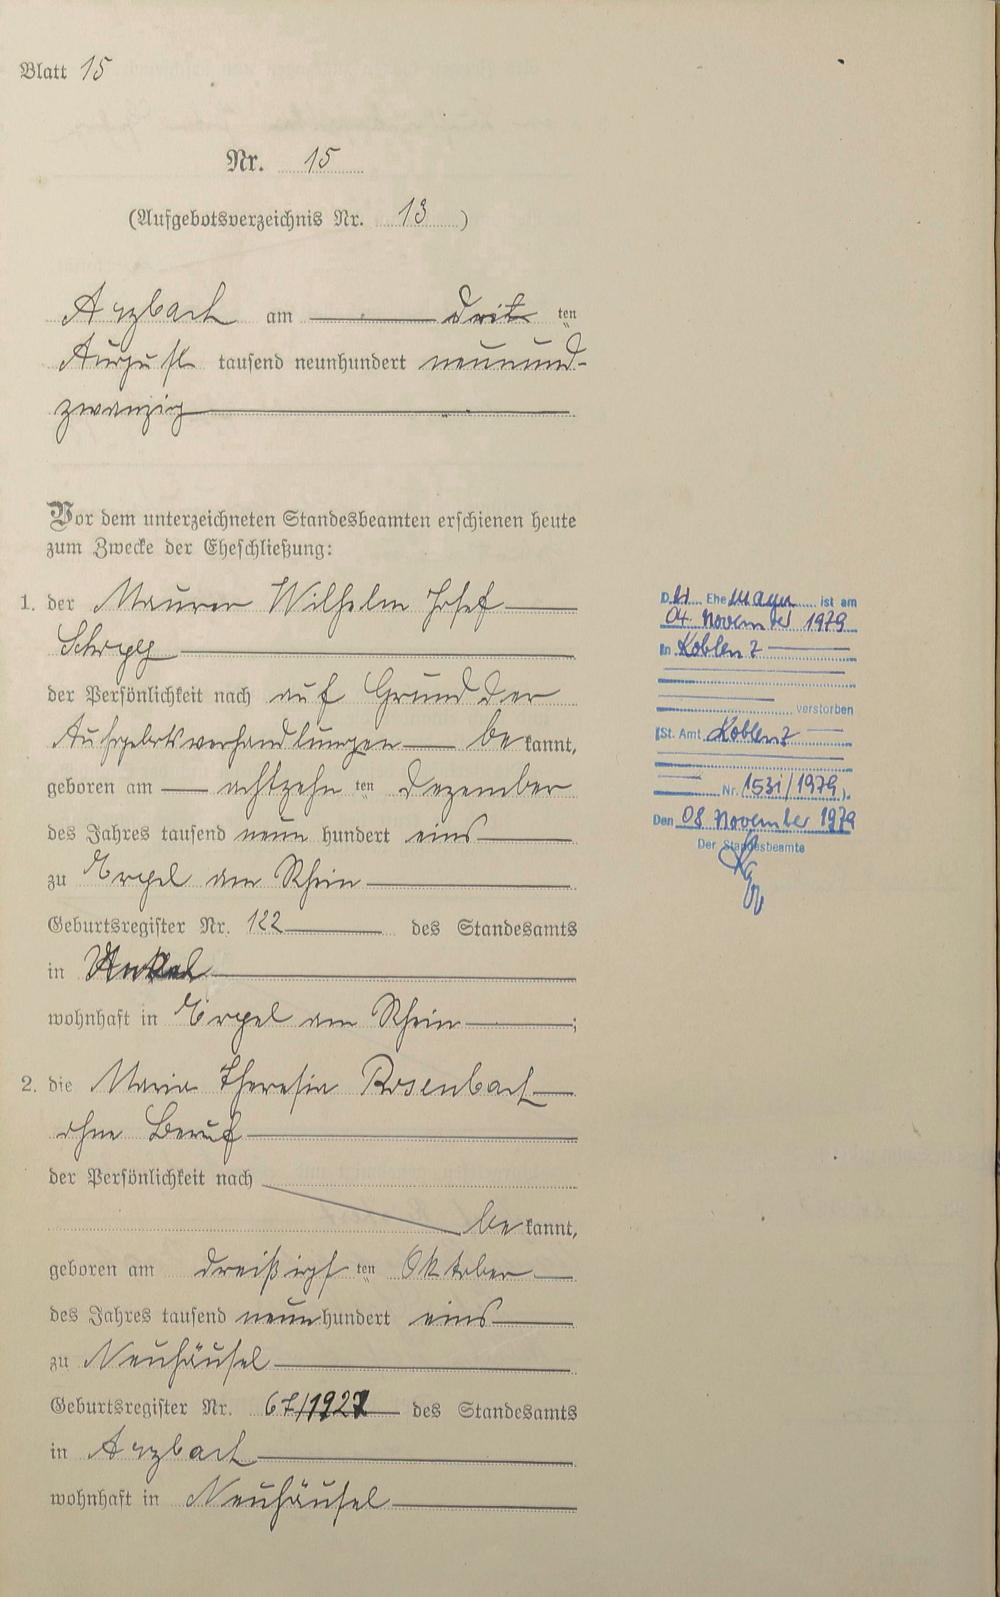 Blatt 15
Nr. 15
(Aufgebotsverzeichnis Nr. 13)
Arzbach am dritten
August tausend neunhundert neunund-
zwanzig
Vor dem unterzeichneten Standesbeamten erschienen heute
zum Zwecke der Eheschließung:
1. der Maurer Wilhelm Josef
der Persönlichkeit nach auf Grund der
Aufgebotsverhandlungen bekannt,
geboren am achtzehnten Dezember
des Jahres tausend neun hundert eins
zu Erpel am Rhein
Geburtsregister Nr. 122 des Standesamts
in Unkel
wohnhaft in Erpel am Rhein;
2. die Maria Theresia Rosenbach
ohne Beruf
der Persönlichkeit nach
bekannt,
geboren am dreißigsten Oktober
des Jahres tausend neunhundert eins
zu Neuhäusel
Geburtsregister Nr. des Standesamts
in Arzbach
wohnhaft in Neuhäusel
Ehe ist am
04. November 1979
in Koblenz
verstorben
(St. Amt Koblenz
Nr. 1531/1979).
Den 08. November 1979
Der Standesbeamte